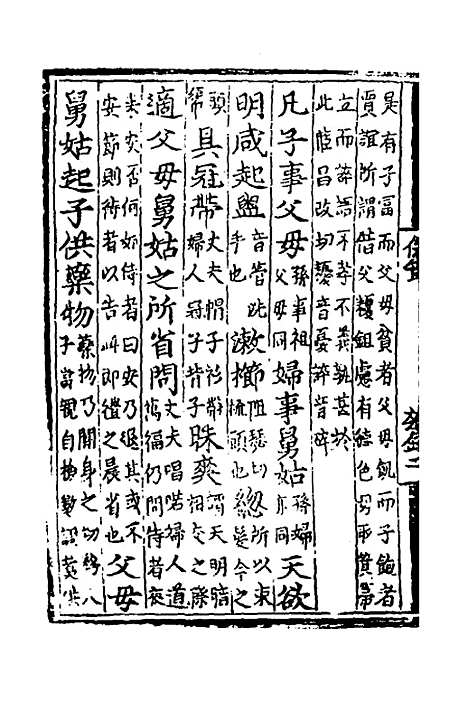 是有子富而父母貧者父母飢而子飽者
賈誼所謂借父耰鉏慮有德色母取箕箒
立而誶語不孝不義孰甚於
此 昌改切耰音憂誶音碎
凡子事父母孫事祖父母同婦事舅姑孫婦亦同天欲
明咸起盥音管洗手也漱櫛阻瑟切梳頭也總所以束髮今之
頭𢄼具冠帶丈夫帽子衫帶婦人冠子背子昧爽謂天明暗相交之際
適父母舅姑之所省問丈夫唱喏婦人道萬福仍問侍者夜
來安否何如侍者曰安乃退其或不安節則侍者以告此即禮之晨省也父母
舅姑起子供藥物藥物乃關身之切務人子當親自檢數調煮供